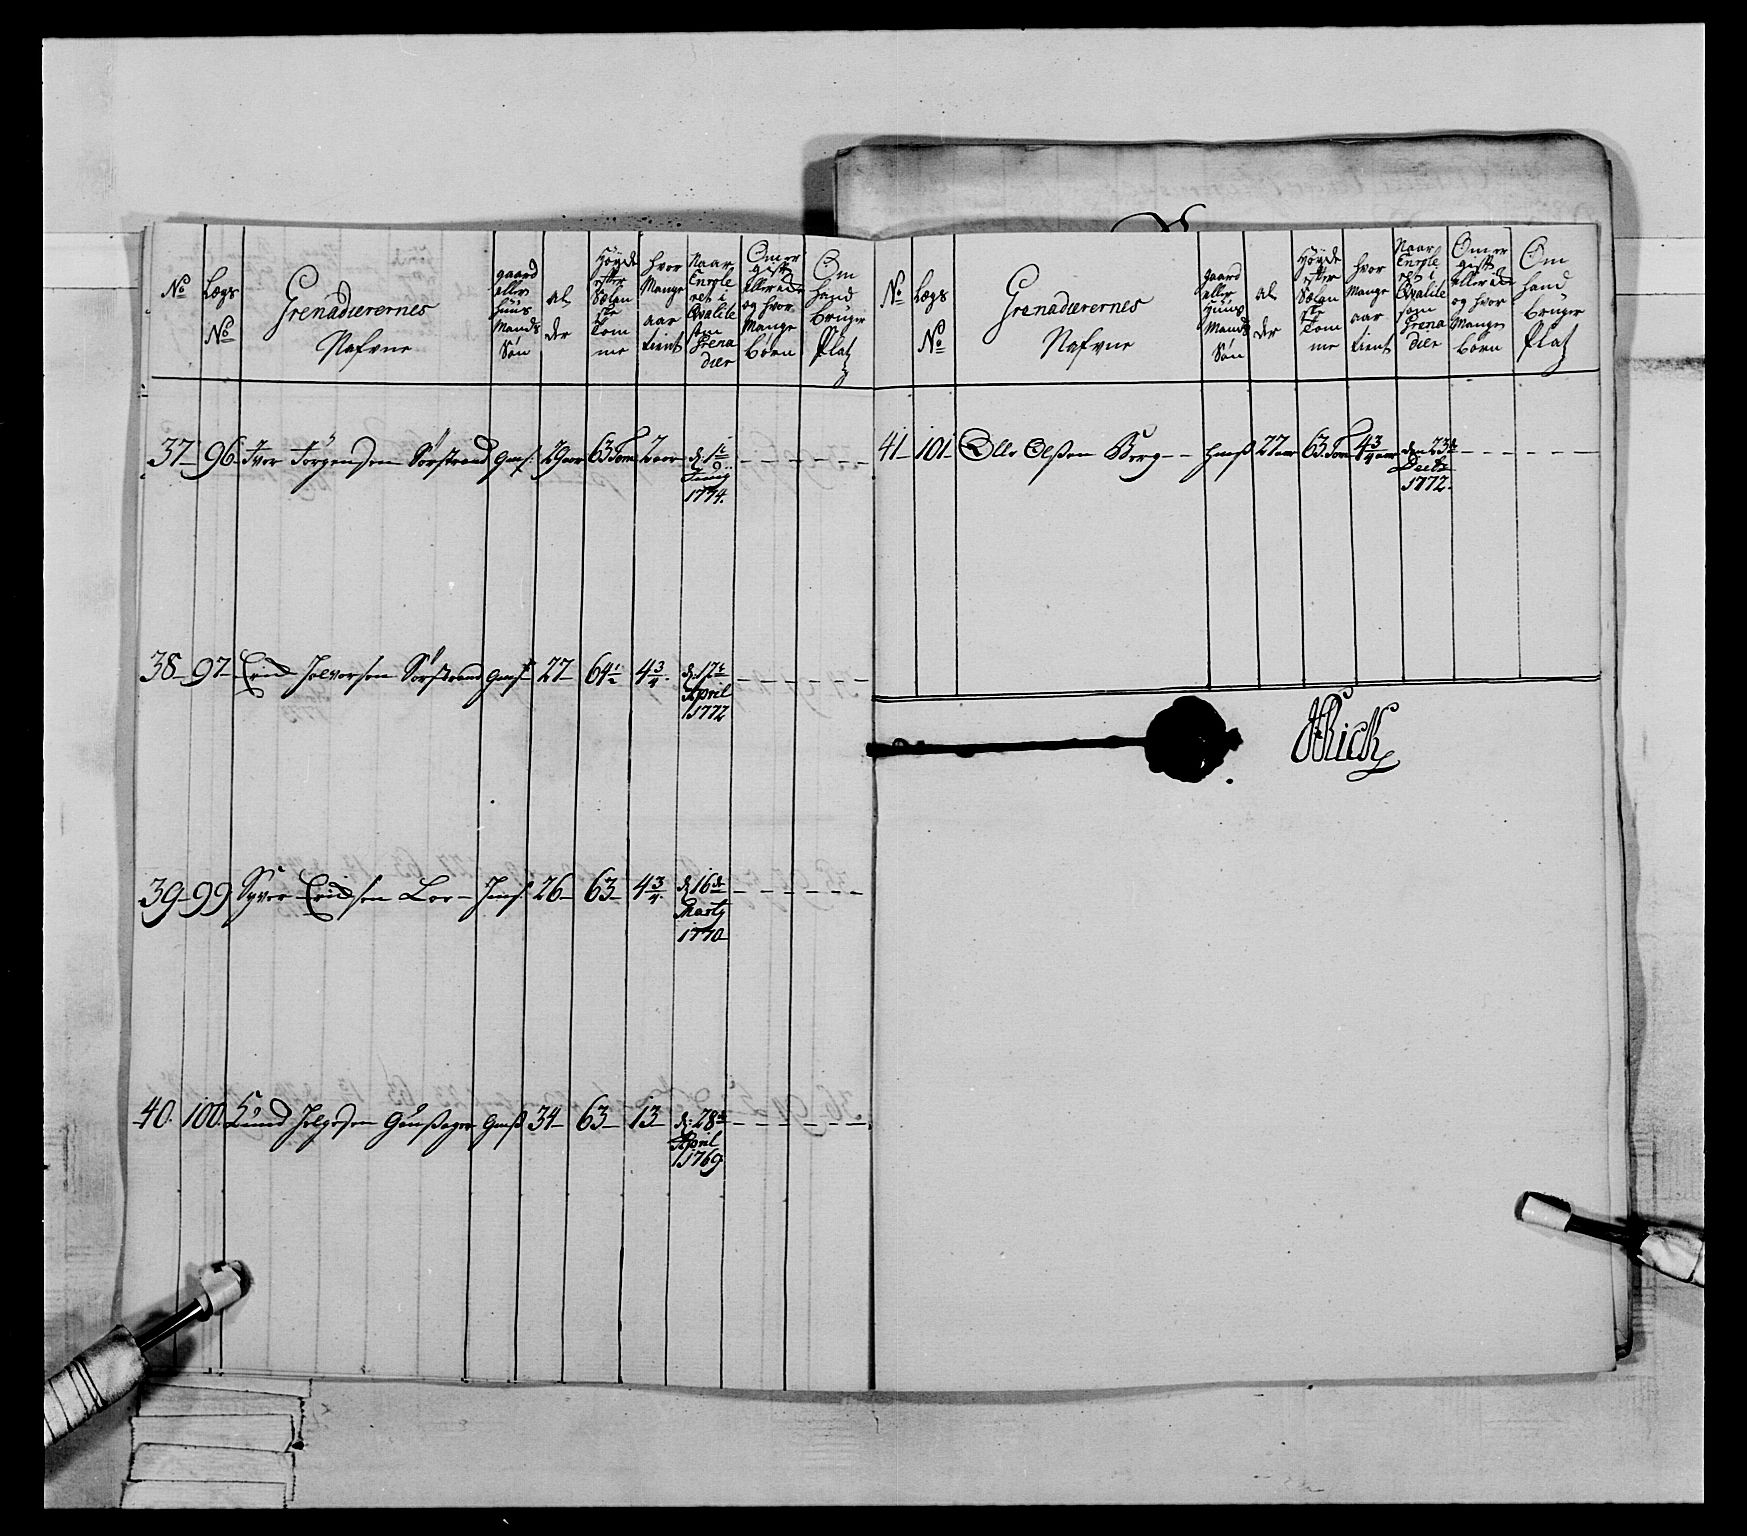 No
Lægs No
Grenadierernes Nafvne
gaard eller Huus Mands Søn
al der
Høyde efter Sælan ste Tom me
hvor Mange aar tient
Naar Enrole ret i Qvalite som Grena dier
Om er gift eller ede og hvor Mange børn
Om hand bruger Platz
37 96 Iver Jørgensen Sørstrand Gmss. 29 aar 63 Tom 2 aar d: 1te Junij 1774.
38 97 Erich Halvorsen Sørstrand Gmss 27 64½ 4¾. d: 17de April 1772
39 99 Syver Erichsen Loe Hmss. 26 63 4¾. d: 16de Martj 1770
40. 100. Knud Helgesen Gaußager Gmß 34 63 13 d: 28de April 1769
No
Lægs No
Grenadierernes Nafvne
gaard eller Huus Mands Søn
al der
Høyde efter Sælan ste Tom me
hvor Mange aar tient
Naar Enrole ret i Qvalite som Grena dier
Om er gift eller ede og hvor Mange børn
Om hand bruger Platz
41 101 Olle Olßen Berg Hmß 27 aar 63 Tom 4¾ aar den 23de Decbr 1772.